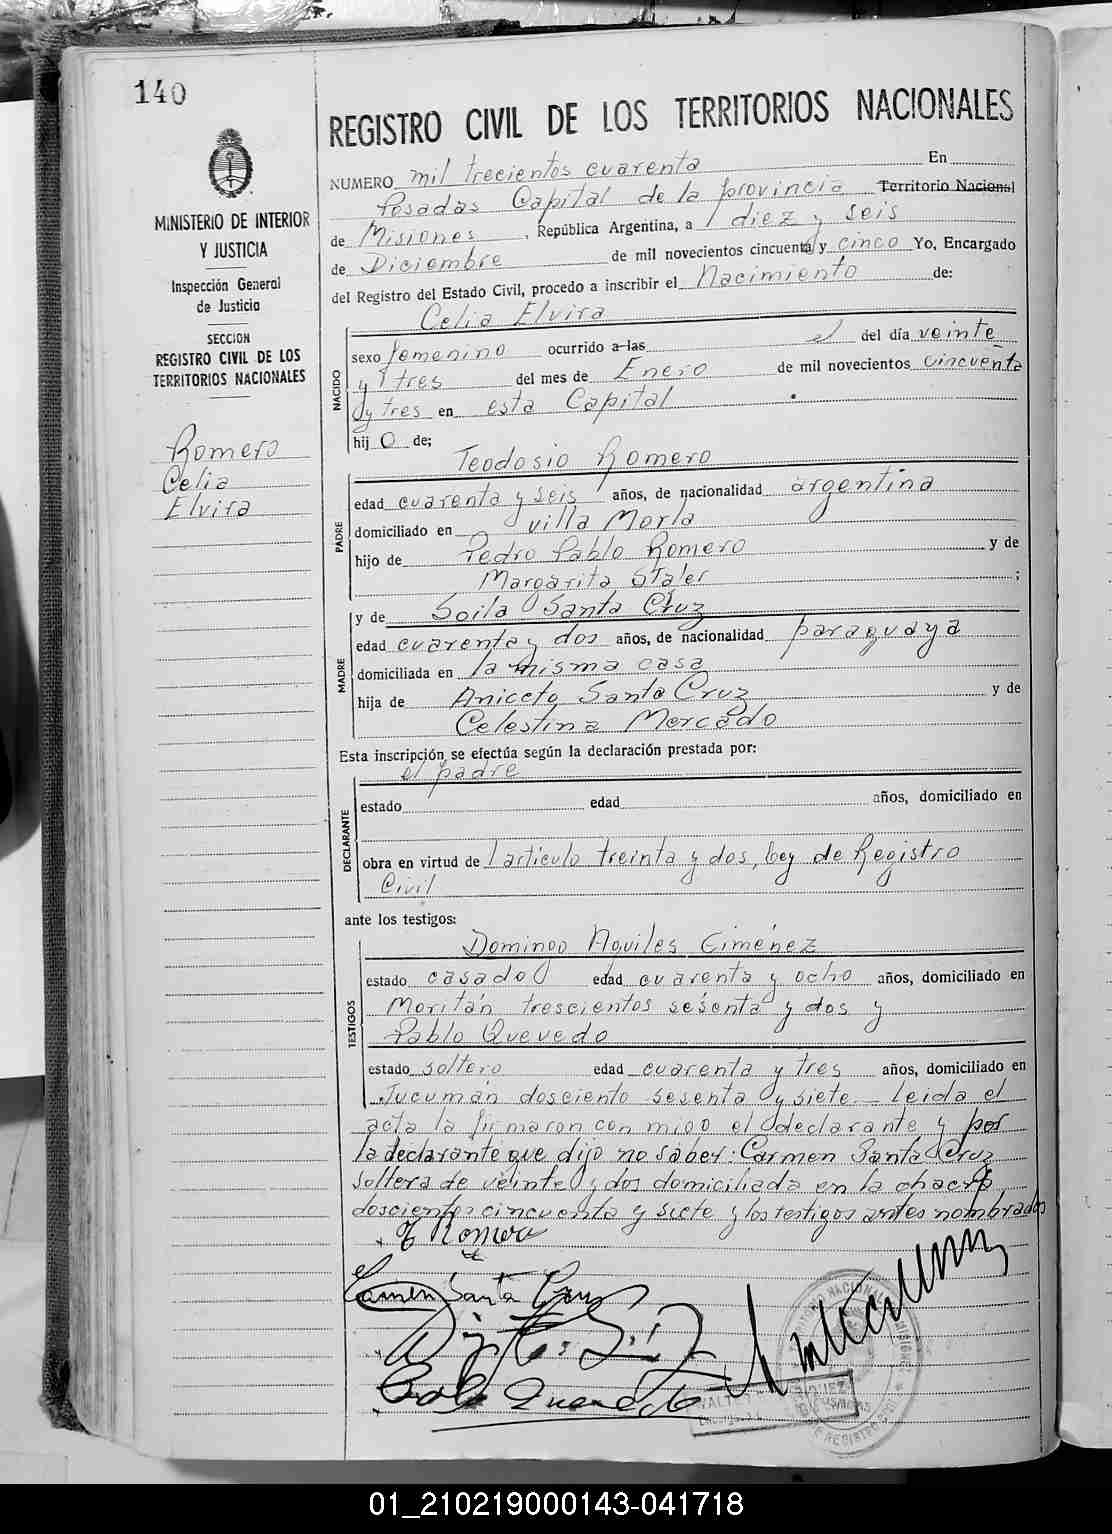 140
MINISTERIO DE INTERIOR
Y JUSTICIA
Inspección General
de Justicia
SECCION
REGISTRO CIVIL DE LOS
TERRITORIOS NACIONALES
Romero
Celia
Elvira
REGISTRO CIVIL DE LOS TERRITORIOS NACIONALES
NUMERO mil trecientos cuarenta En
Posadas Capital de la provincia Territorio Nacional
de Misiones, República Argentina, a diez y seis
de Diciembre de mil novecientos cincuenta y cinco Yo, Encargado
del Registro del Estado Civil, procedo a inscribir el Nacimiento de:
Celia Elvira
NACIDO
sexo femenino ocurrido a las el del día veinte
y tres del mes de Enero de mil novecientos cincuenta
y tres en esta Capital
hij o de;
Teodosio Romero
PADRE
edad cuarenta y seis años, de nacionalidad argentina
domiciliado en villa Morla
hijo de Pedro Pablo Romero y de
Margarita Staler ;
y de Soila Santa Cruz
MADRE
edad cuarenta y dos años, de nacionalidad paraguaya
domiciliada en la misma casa
hija de Aniceto Santa Cruz y de
Celestina Mercado
Esta inscripción se efectúa según la declaración prestada por:
el padre
DECLARANTE
estado edad años, domiciliado en
obra en virtud de l articulo treinta y dos, Ley de Registro
Civil
ante los testigos:
Domingo Aquiles Giménez
TESTIGOS
estado casado edad cuarenta y ocho años, domiciliado en
Moritán trescientos sesenta y dos y
Pablo Quevedo
estado soltero edad cuarenta y tres años, domiciliado en
Tucumán dosciento sesenta y siete leida el
acta la firmaron con migo el declarante y por
la declarante que dijo no saber: Carmen Santa Cruz
soltera de veinte y dos domiciliada en la chacra
doscientos cincuenta y siete y los testigos antes nombrados
T Romero
Carmen Santa Cruz
Pablo Quevedo
01_210219000143-041718